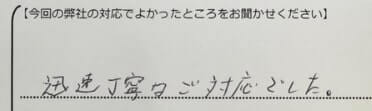 【今回の弊社の対応でよかったところをお聞かせください】
迅速丁寧なご対応でした。